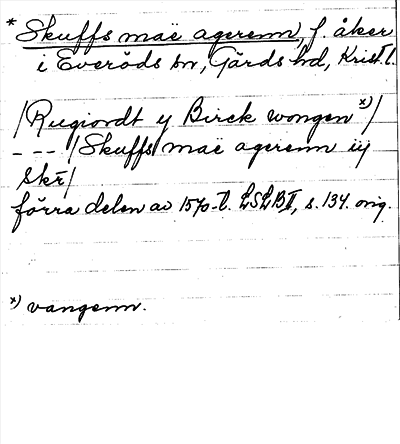 * Skuffs maë agerenn, f. åker
i Everöds sn, Gärds hd, Krist. l.
/Rugiordt y Birck wongen x)/
- - - /Skuffs maë agerenn iij
skr̄/
förra delen av 1570-t. LSLBII, s. 134. orig.
x) vangenn.